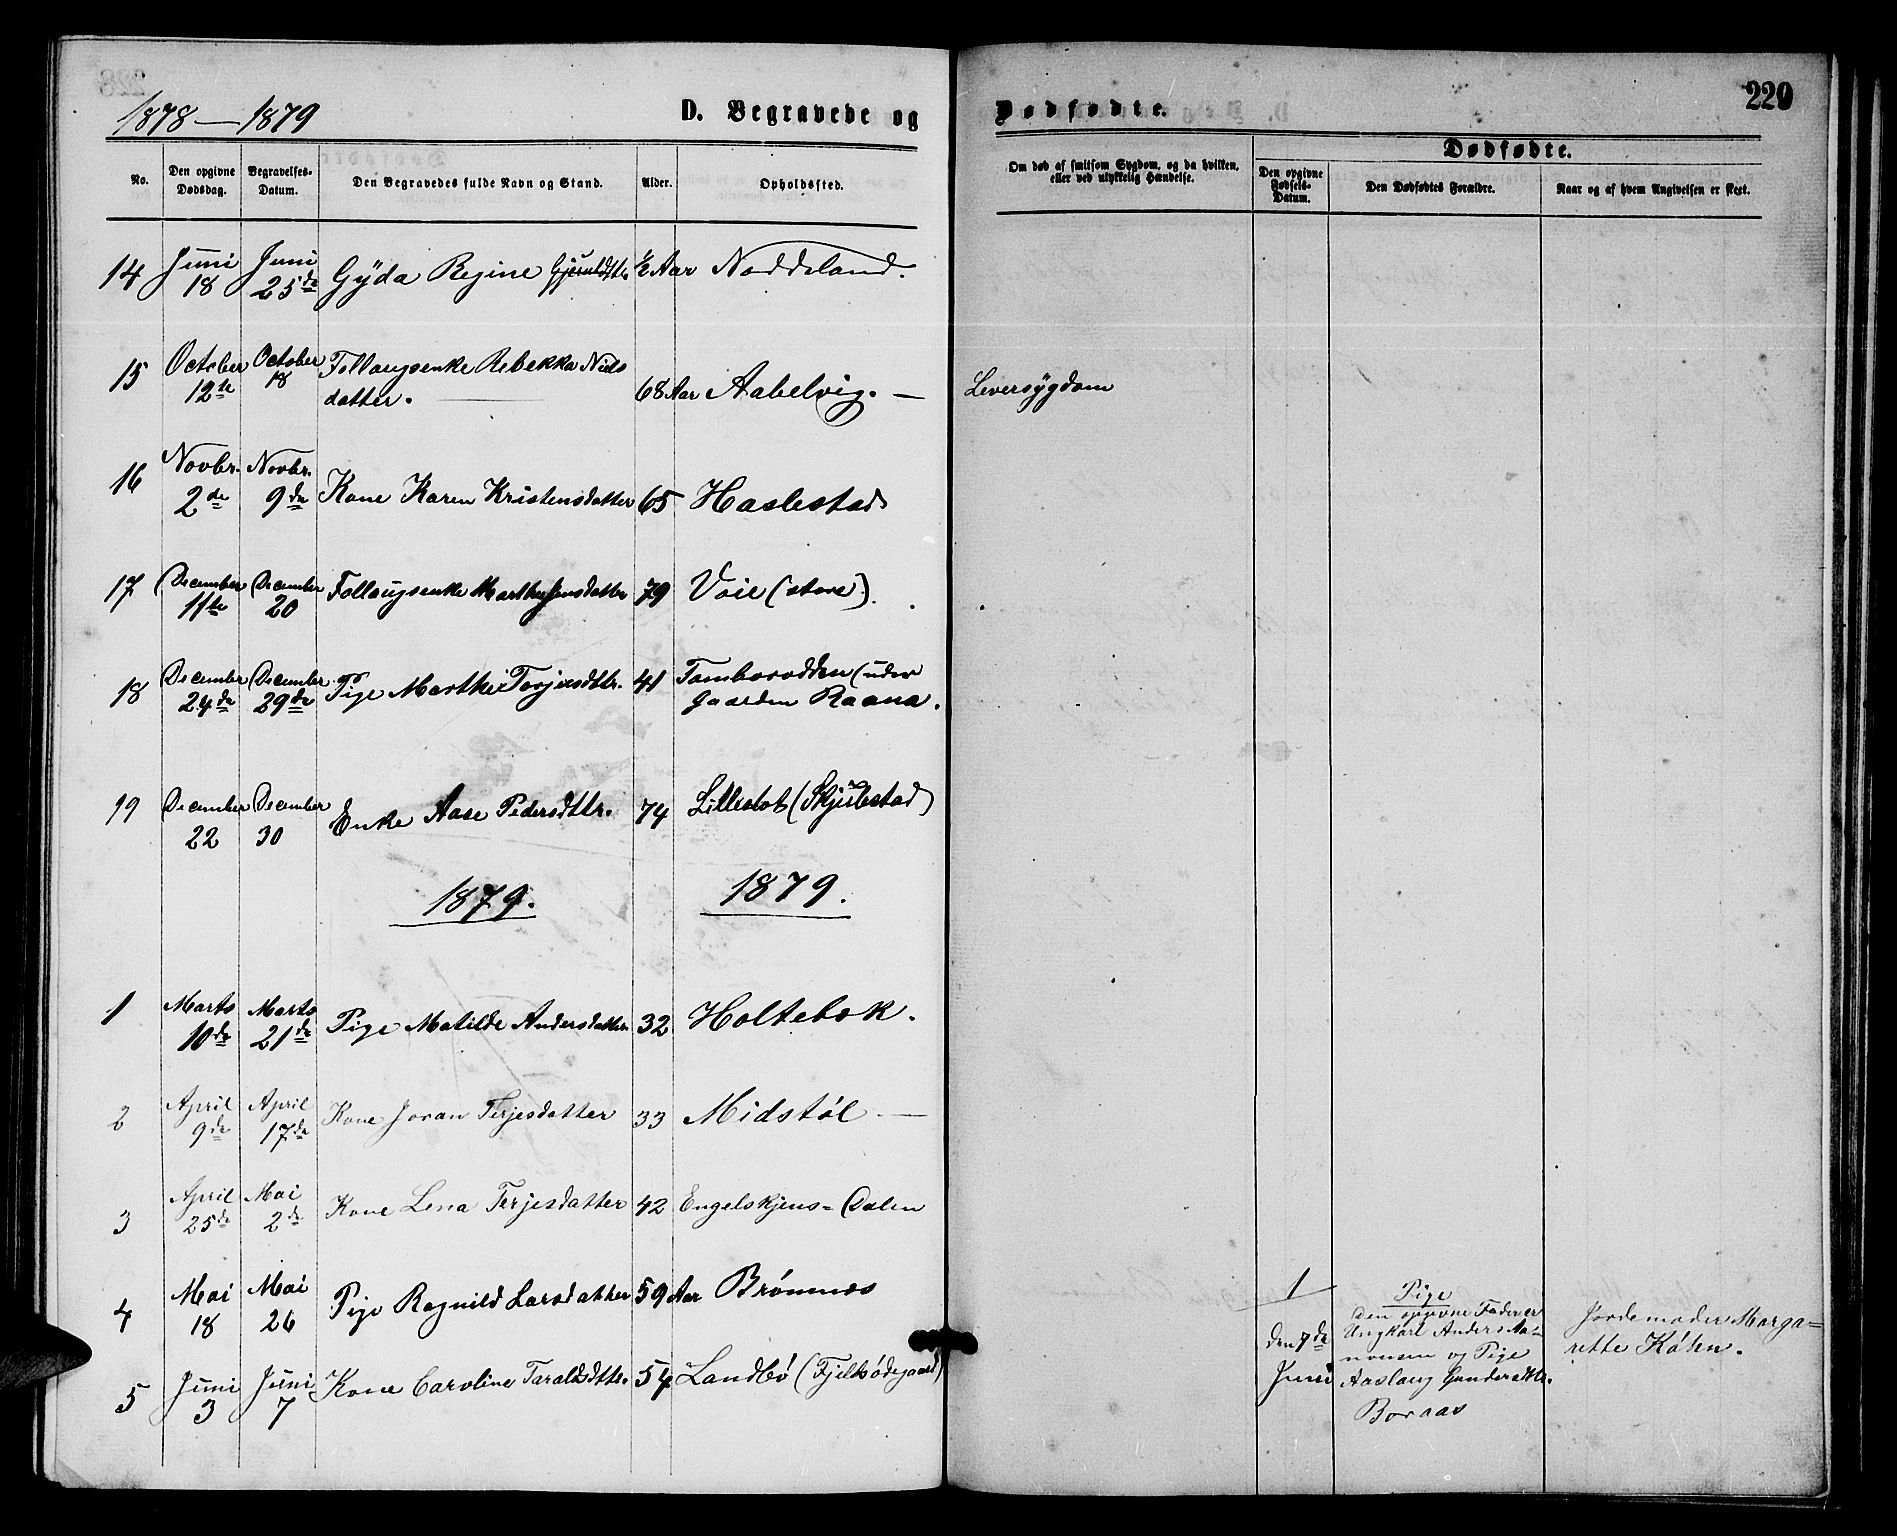 1878 — 1879
D. Begravede og
Dødfødte.
229
No.
Den opgivne Dødsdag.
Begravelses-Datum.
Den Begravedes fulde Navn og Stand.
Alder.
Opholdssted.
Om død af smitsom Sygdom, og da hvilken,
eller ved ulykkelig Hændelse.
Dødfødte.
Den opgivne Fødsels-Datum.
Den Dødfødtes Forældre.
Naar og af hvem Angivelsen er skeet.
14 Juni 18 Juni 25de Gyda Regine ½ Aar Noddeland.
15 October 12te October 18 Follaugsenke Rebekka Niels
datter. — 68 Aar Aabelvig. — Leversygdom
16 Novbr. 2de Novbr. 9de Kone Karen Kristensdatter 65 Haslestad
17 December 11te December 20 Follaugsenke Marthe Jensdatter 79 Voie (store).
18 December 24de December 29de Pige Marthe Torjusdttr. 41 (under
gaarden Raana.
19 December 22 December 30 Enke Aase Pedersdttr. 74 Lilleslot (Skjulestad)
1879. 1879.
1 Marts 10de Marts 21de Pige Matilde Andersdatter 32 Holtebæk.
2 April 9de April 17de Kone Joran Terjesdatter 33 Midstøl —
3 April 25de Mai 2de Kone Lena Terjesdatter 42 Engelskjens=Dalen
4 Mai 18 Mai 26 Pige Ragnild Larsdatter 59 Aar Brønnes
5 Juni 3 Juni 7 Kone Caroline Taraldsdttr. 54 Landbø (Fjelbødegaard)
1
den 7de
Juni
Pige
Den opgivne Fader er
Ungkarl Anders Aa=
nonsen og Pige
Aaslaug Gundersdttr.
Boraas
Jordemoder Marga=
rette Køhn.